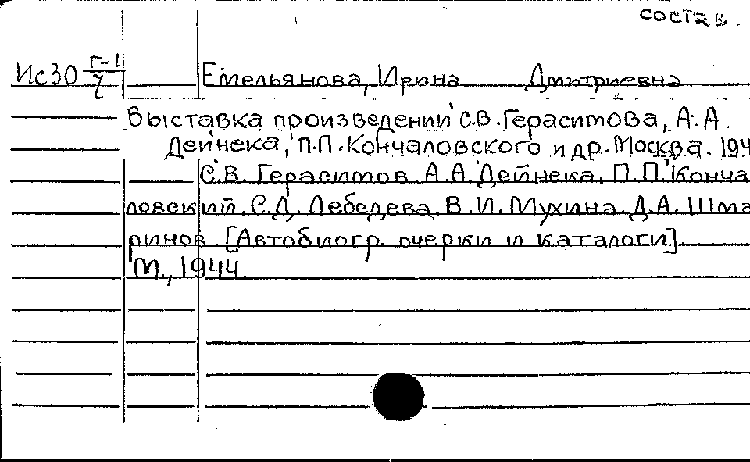 сост в.
Ис30 Г-1/7 Емельянова, Ирина Дмитриевна
Выставка произведений С.В. Герасимова, А.А.
Дейнека, П.П. Кончаловского и др. Москва. 194
С.В. Герасимов. А.А. Дейнека. П.П. Конча
ловский. С.Д. Лебедева. В.И. Мухина. Д.А. Шма
ринов. [Автобиогр. очерки и каталоги].
М., 1944